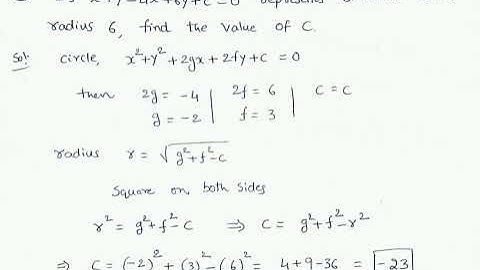 x²+y²-4x+6y+c=0
radius 6, find the value of C.
Sol: circle, x²+y²+2gx+2fy+c=0
then 2g = -4 | 2f = 6 | C = C
g = -2 | f = 3 |
radius r = √g²+f²-c
Square on both sides
r² = g²+f²-c ⇒ C = g²+f²-r²
⇒ C = (-2)²+(3)²-(6)² = 4+9-36 = -23